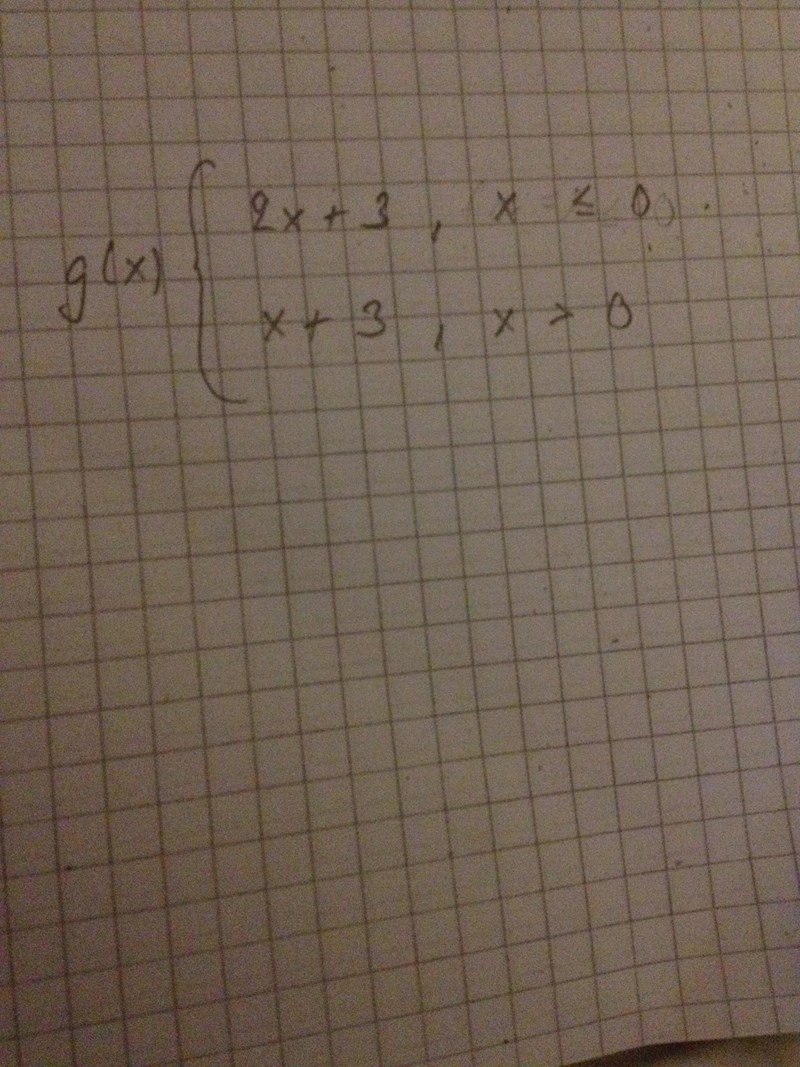 g(x) { 2x + 3 , x ≤ 0
x + 3 , x > 0